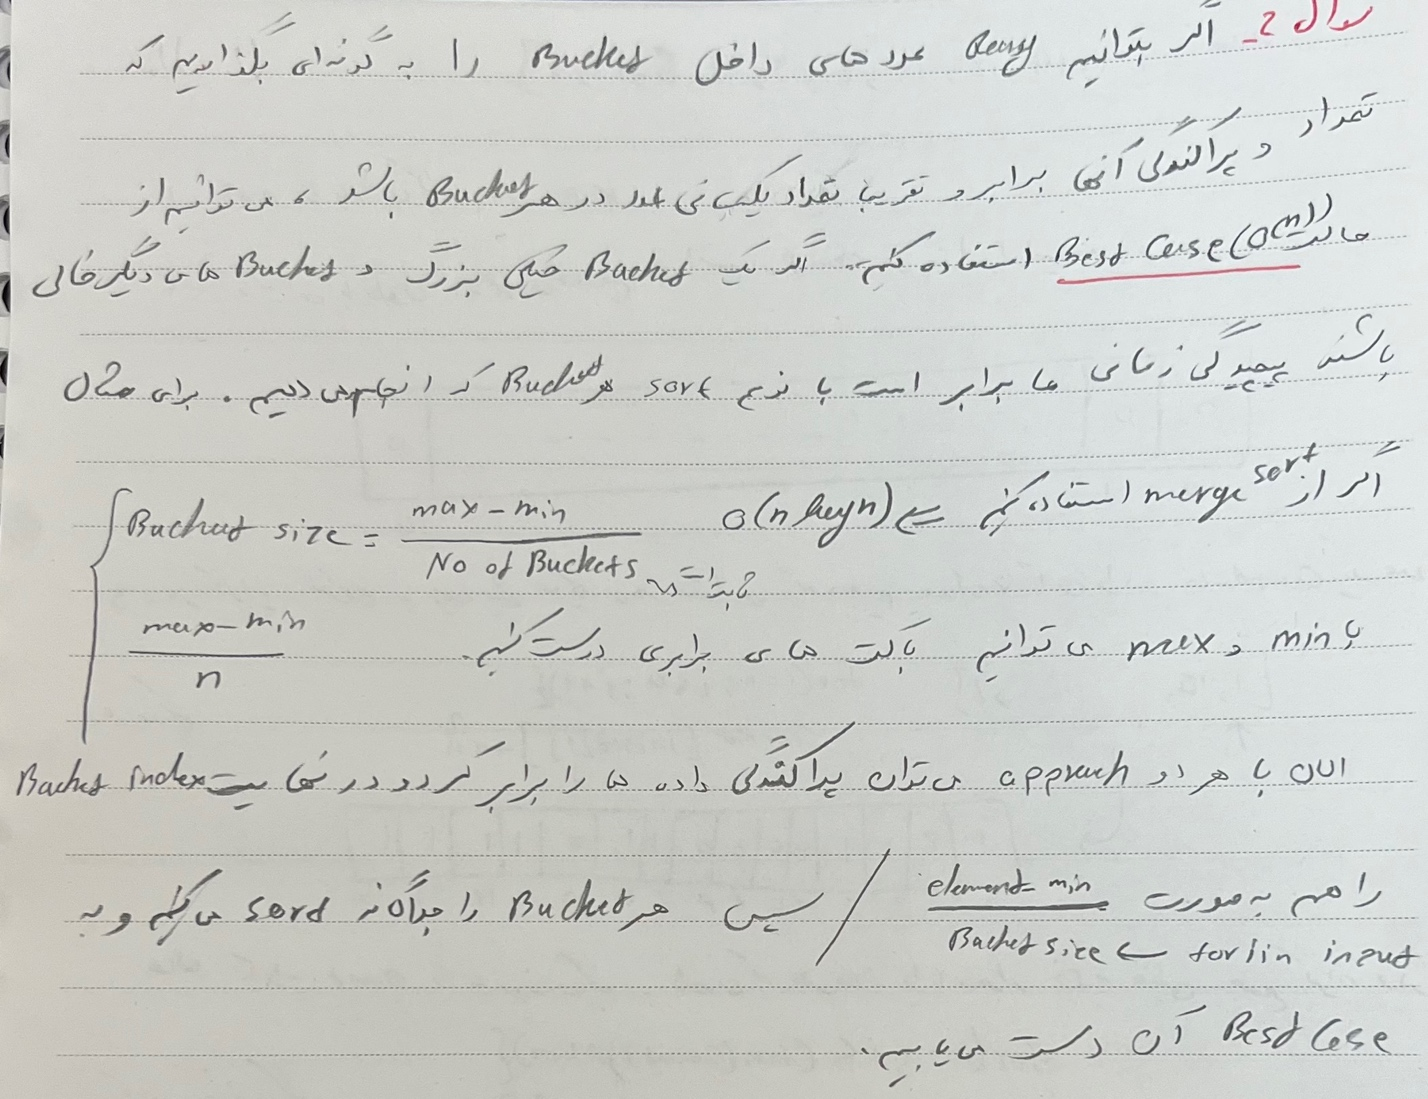 سوال 2- اگر بتوانیم Array عدد های داخل Bucket را به گونه ای بگذاریم که
تعداد و پراکندگی آنها برابر و تقریبا تعداد یکسانی عدد در هر Bucket باشد، می توانیم از
حالت Best Case (O(n)) استفاده کنیم. اگر یک Bucket خیلی بزرگ و Bucket های دیگر خالی
باشند پیچیدگی زمانی ما برابر است با نوع sort هر Bucket که انجام می دهیم. برای مثال
اگر از merge sort استفاده کنیم ⇐ O(n logn)
Bucket size = (max - min) / No of Buckets ثابت است
با min و max می توانیم باکت های برابری درست کنیم. (max - min) / n
الان با هر دو approach می توان پراکندگی داده ها را برابر کرد و در نهایت Bucket index
را هم به صورت (element - min) / Bucket size ← for lin input / سپس هر Bucket را جداگانه sort می کنیم و به
Best Case آن دست می یابیم.